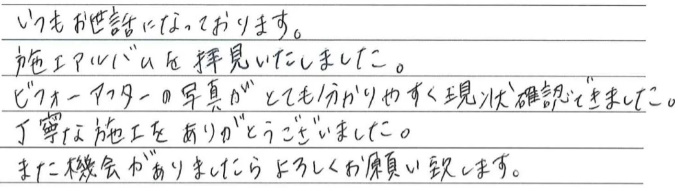 いつもお世話になっております。
施工アルバムを拝見いたしました。
ビフォーアフターの写真がとても分かりやすく現状確認できました。
丁寧な施工をありがとうございました。
また機会がありましたらよろしくお願い致します。